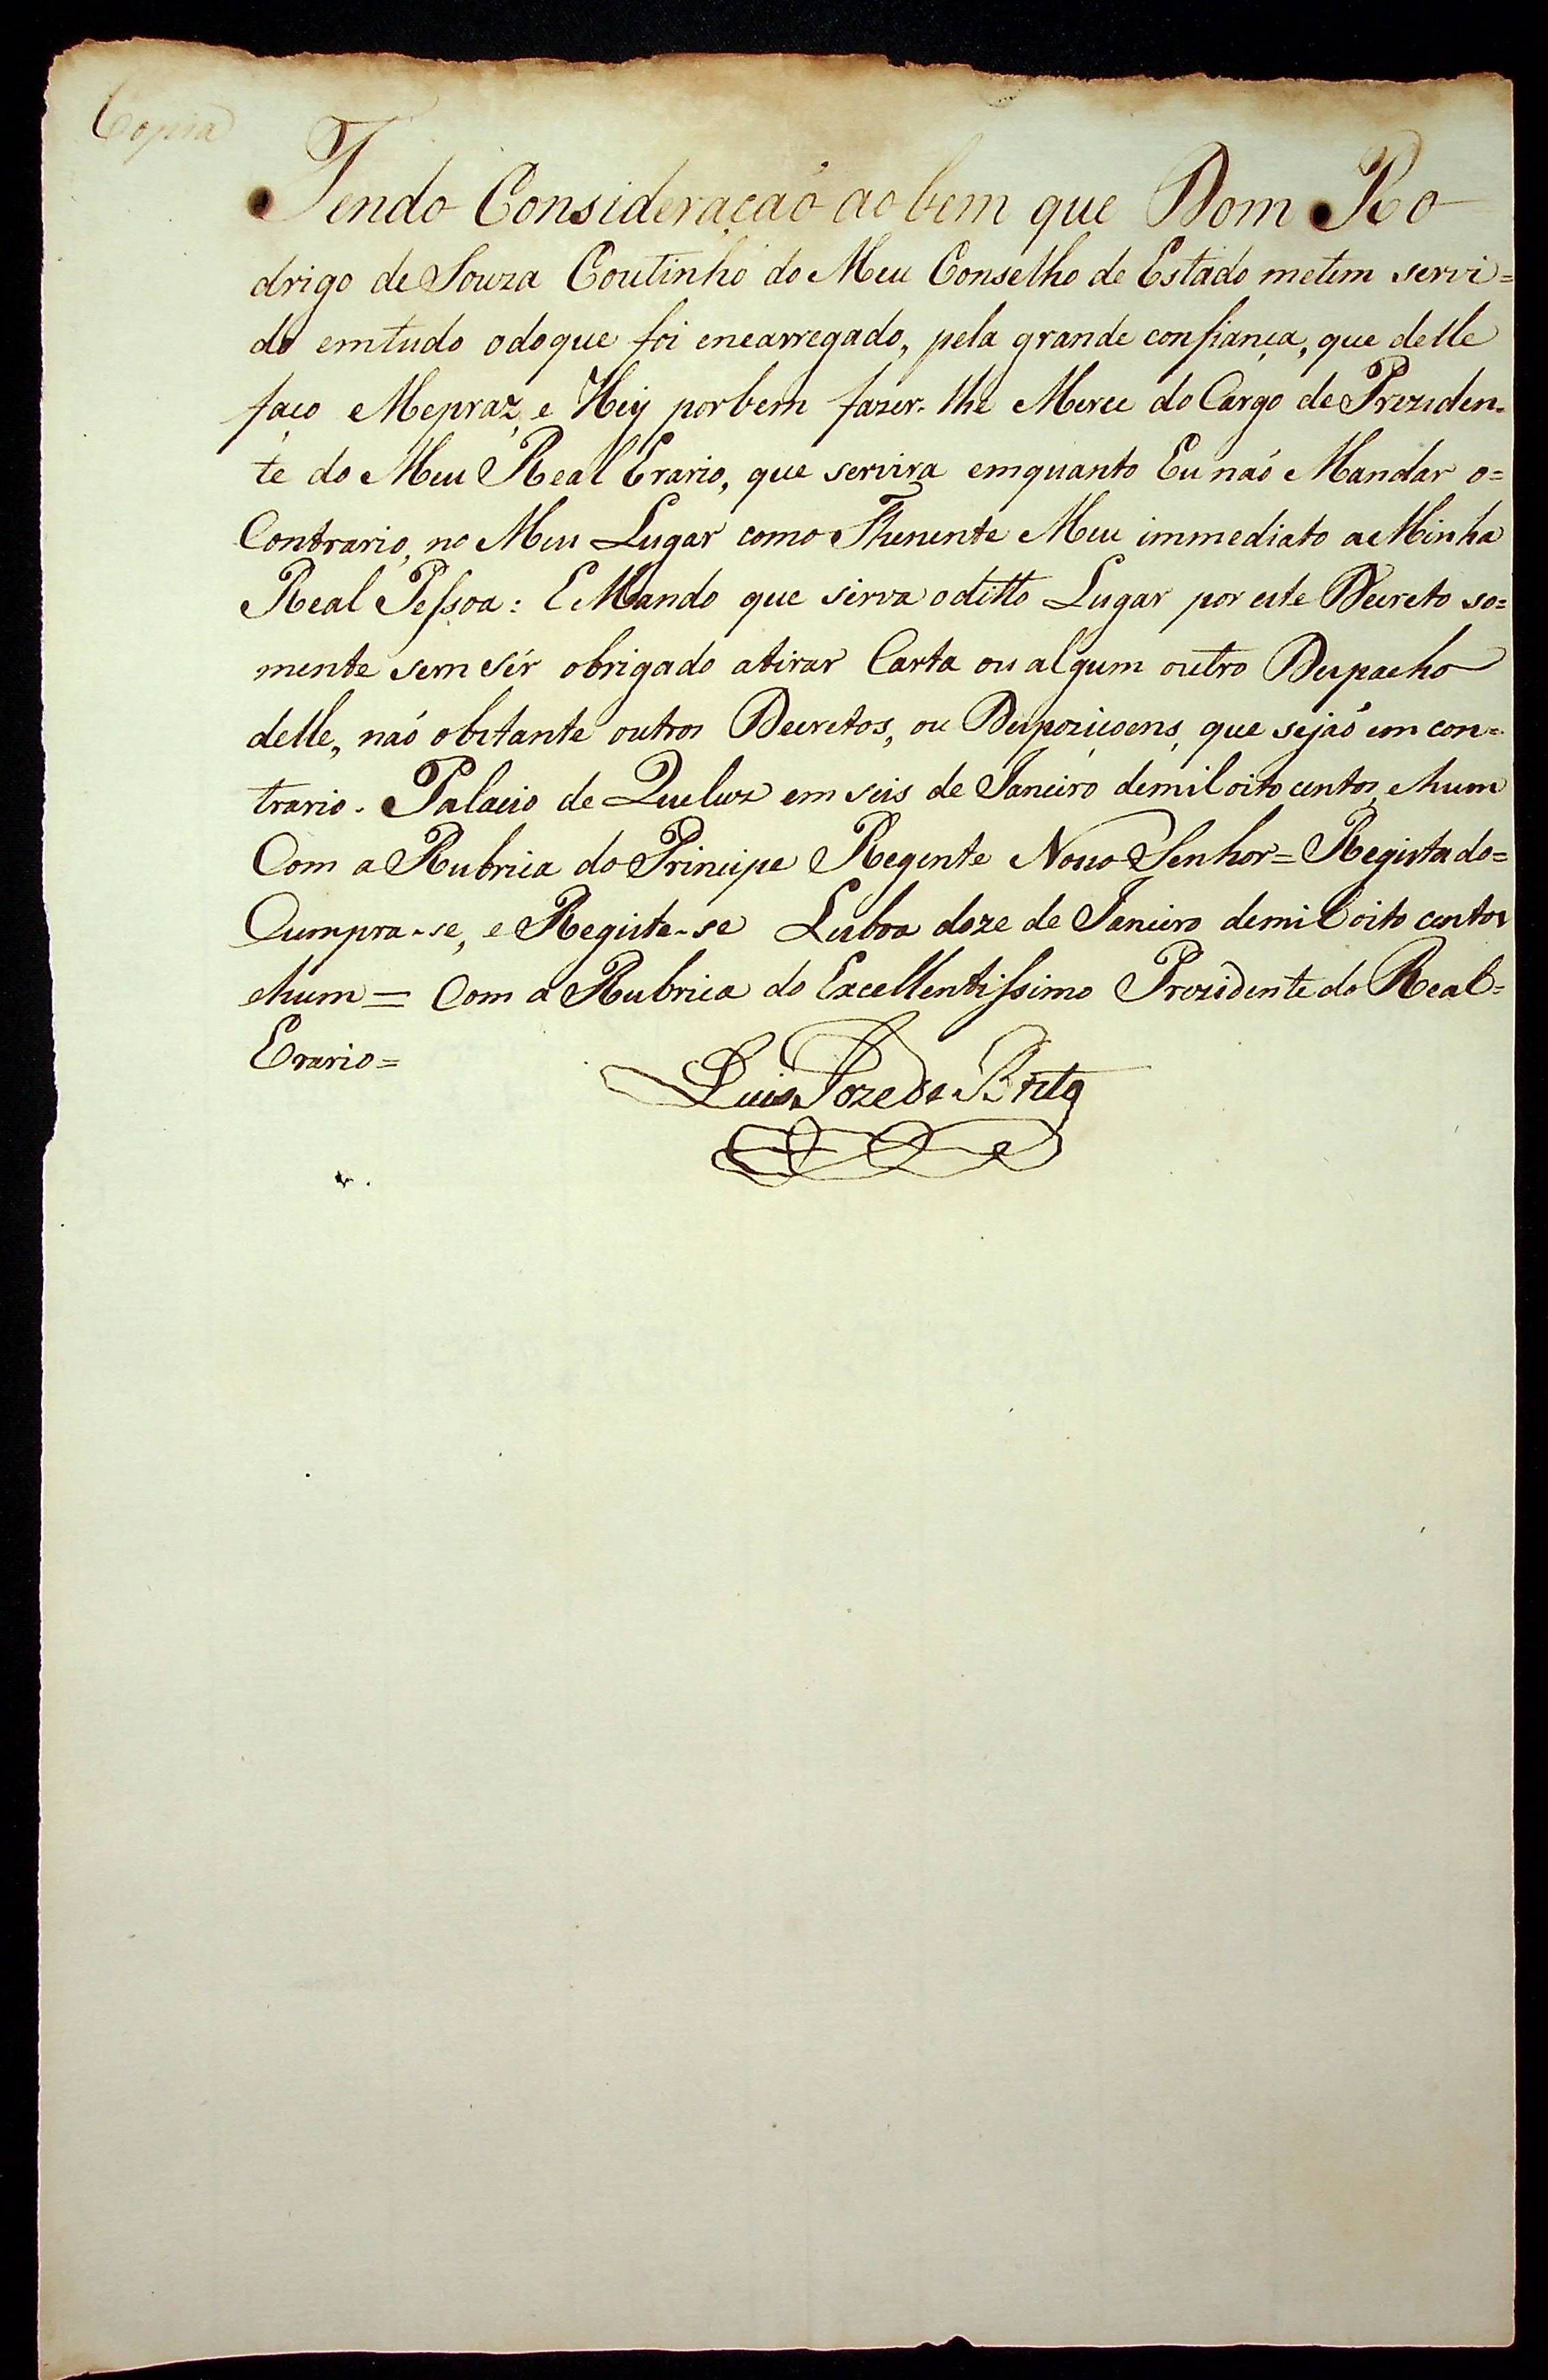 Copia
Tendo Consideraçaõ ao bem que Dom Ro
drigo de Souza Coutinho do Meu Conselho de Estado metem servi=
do emtudo odoque foi encarregado, pela grande confiança, que delle
faço eMepraz, e Hey porbem fazer-lhe Merce do Cargo de Preziden-
te do Meu Real Erario, que servira emquanto Eu naõ Mandar o=
Contrario, no Meu Lugar como Thenente Meu immediato aMinha
Real Pessoa: E Mando que sirva oditto Lugar por este Decreto so=
mente sem sér obrigado atirar Carta ou algum outro Despacho
delle, naõ obstante outros Decretos, ou Dispoziçoens, que sejaõ em con=
trario. Palacio de Queluz em seis de Janeiro demil oito centos, ehum
Com a Rubrica do Principe Regente Nosso Senhor = Registado=
Cumpra-se, e Registe-se Lisboa doze de Janeiro demil oito centos
ehum = Com a Rubrica do Excellentissimo Prezidente do Real=
Erario=
Luis Joze de Brito